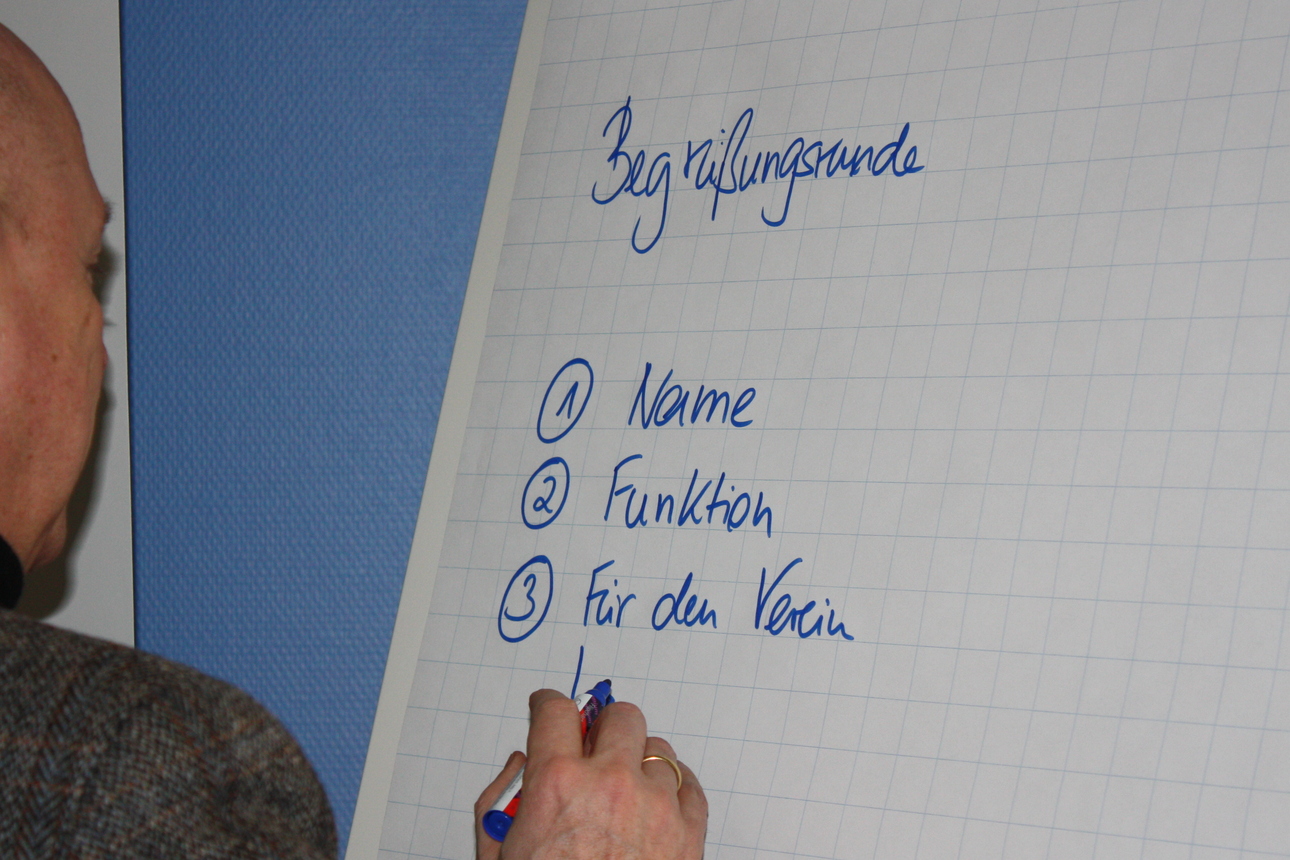 Begrüßungsrunde
1 Name
2 Funktion
3 Für den Verein